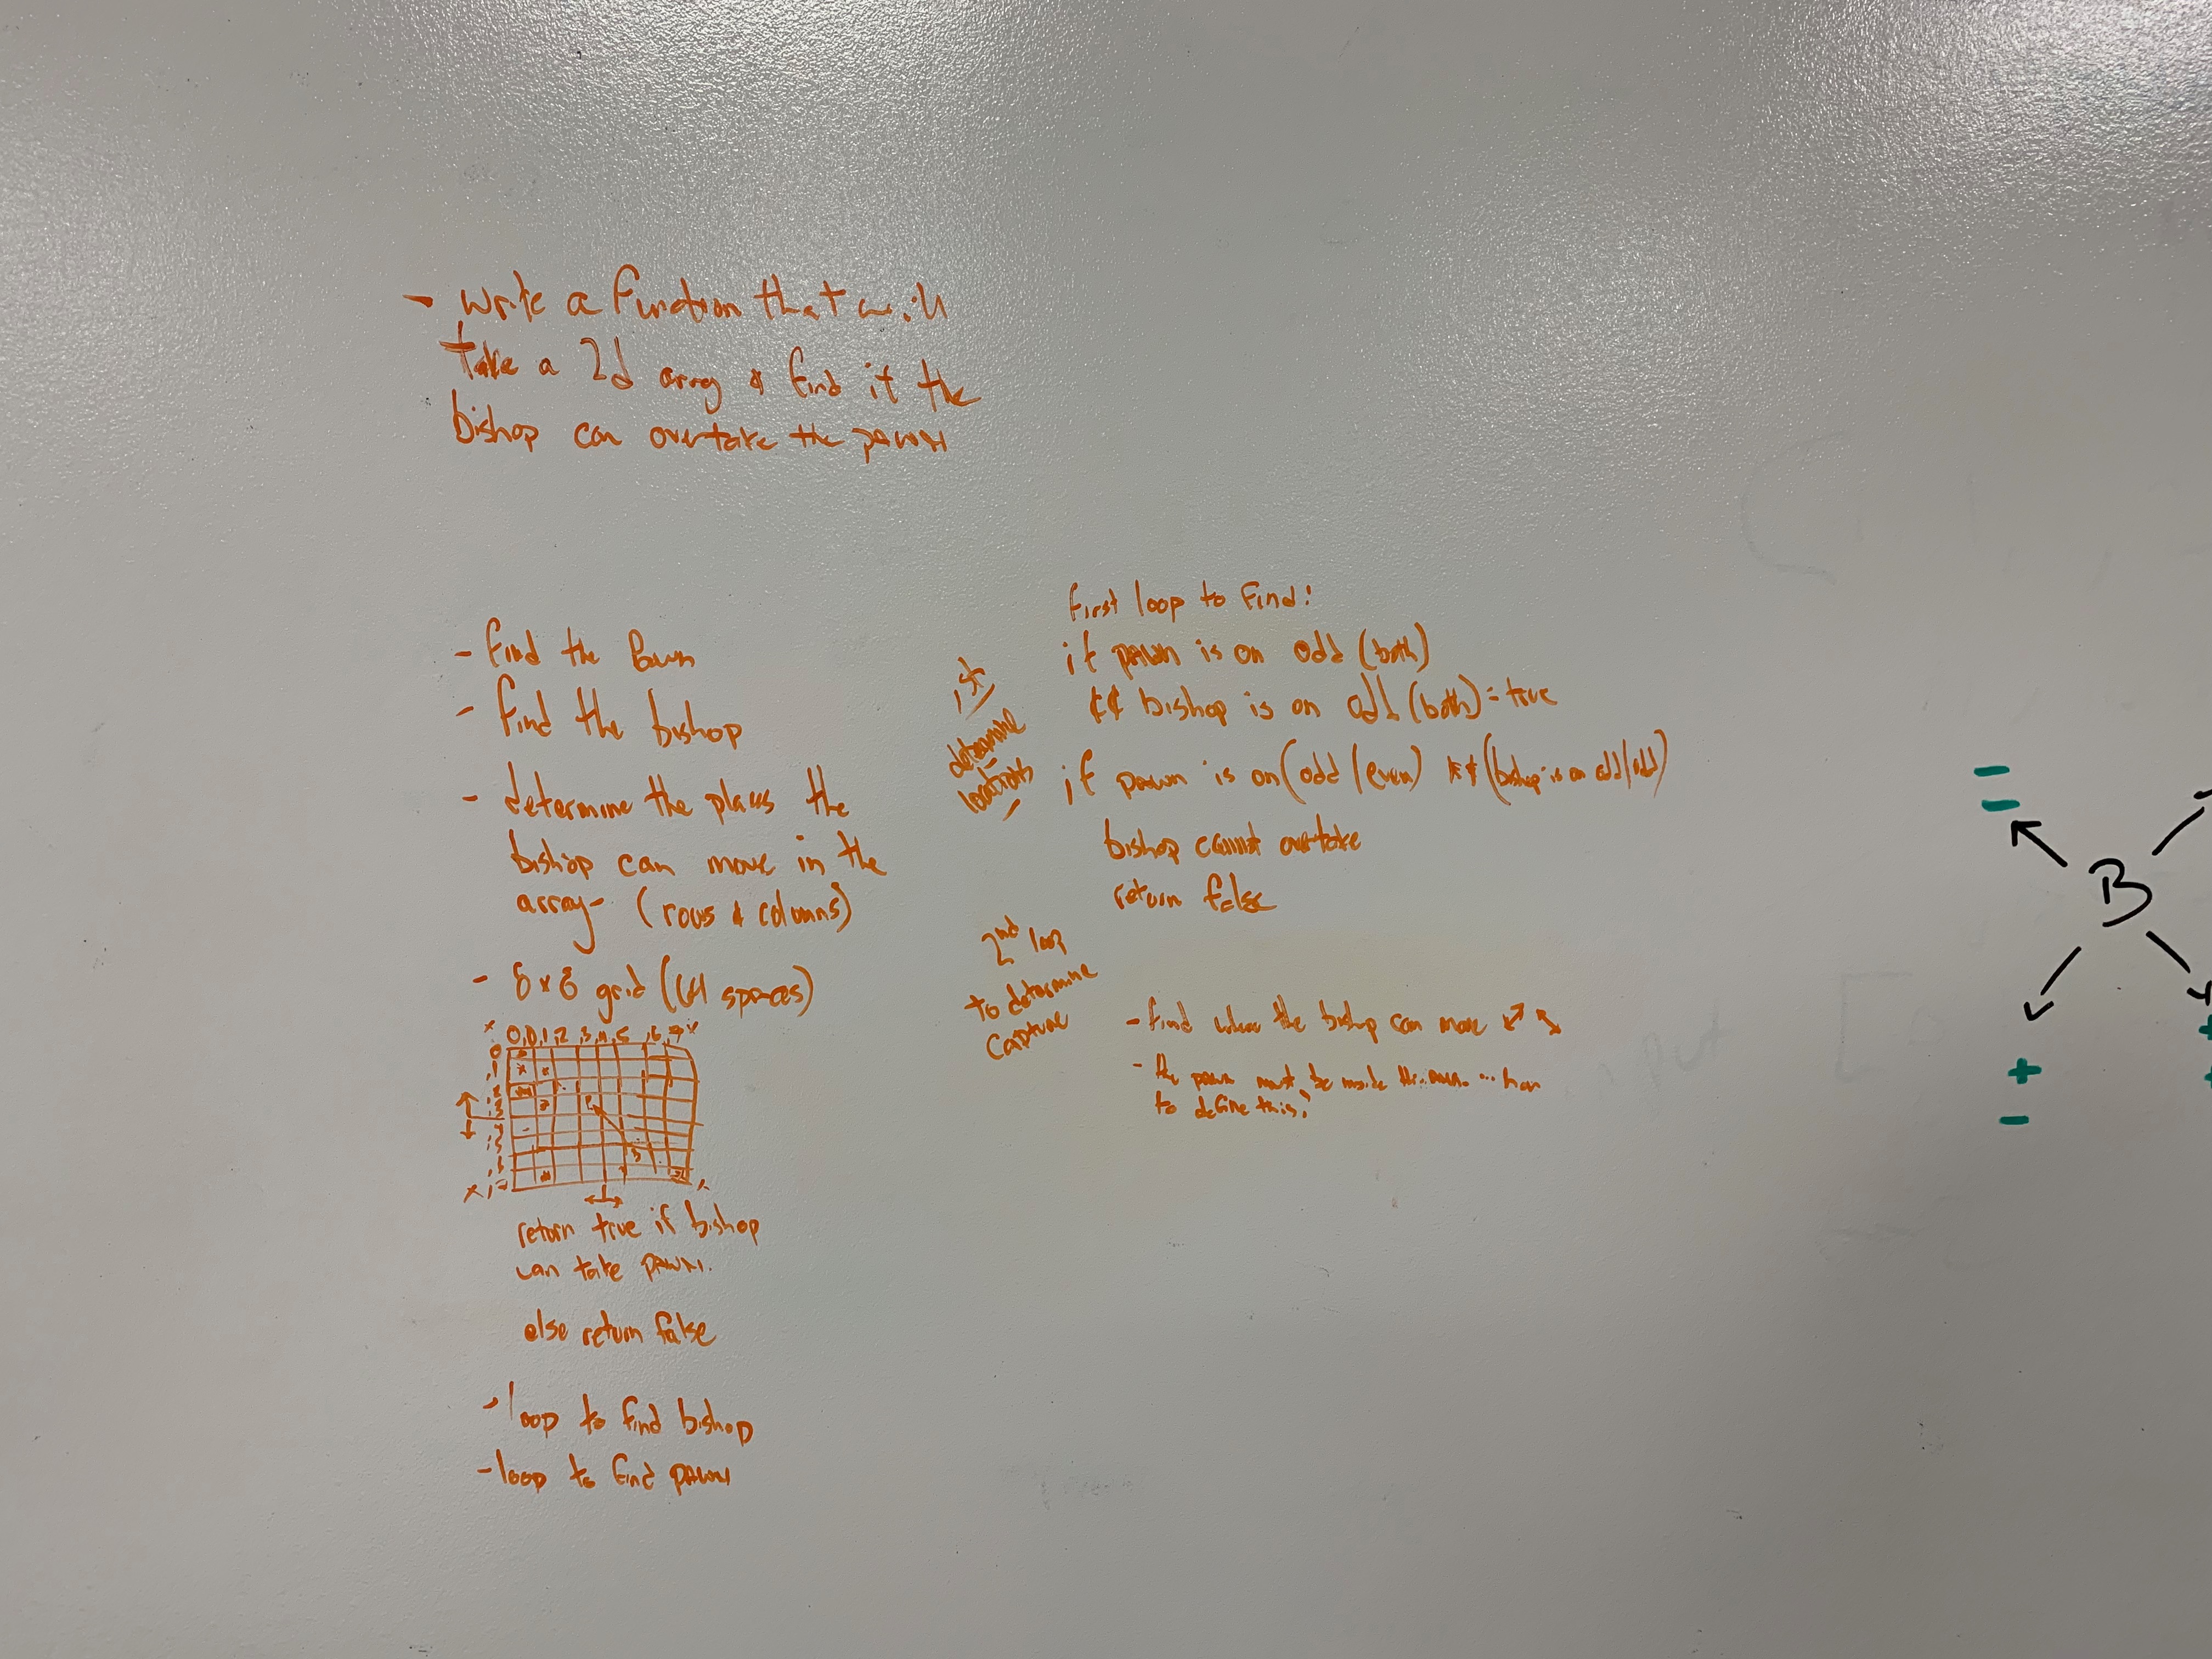 - write a function that will
take a 2d array & find if the
bishop can overtake the pawn
- find the Pawn
- find the bishop
- determine the places the
bishop can move in the
array - (rows & columns)
- 8x8 grid (64 spaces)
return true if bishop
can take pawn.
else return false
- loop to find bishop
- loop to find pawn
1st
determine
locations
first loop to find:
if pawn is on odd (both)
&& bishop is on odd (both) = true
if pawn is on (odd/even) && (bishop is on odd/odd)
bishop cannot overtake
return false
2nd loop
to determine
capture
- find where the bishop can move
- the pawn must be inside this ... how
to define this?
B
- -
+ -
+
+